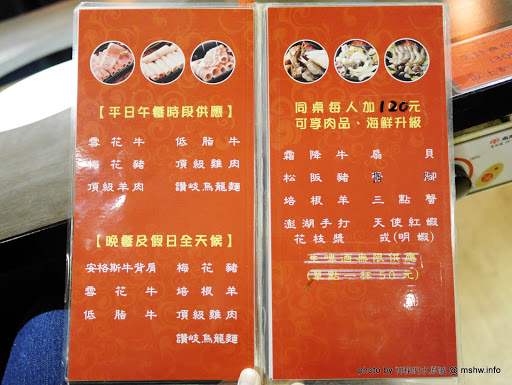 【平日午餐時段供應】
雪花牛 低脂牛
梅花豬 頂級雞肉
頂級羊肉 讚岐烏龍麵
【晚餐及假日全天候】
安格斯牛背肩 梅花豬
雪花牛 培根羊
低脂牛 頂級雞肉
讚岐烏龍麵
同桌每人加120元
可享肉品、海鮮升級
霜降牛 扇貝
松阪豬 腳
培根羊 三點蟹
澎湖手打 天使紅蝦
花枝漿 或(明蝦)
啤酒無限供應
(單點一杯50元)
photo by @ mshw.info